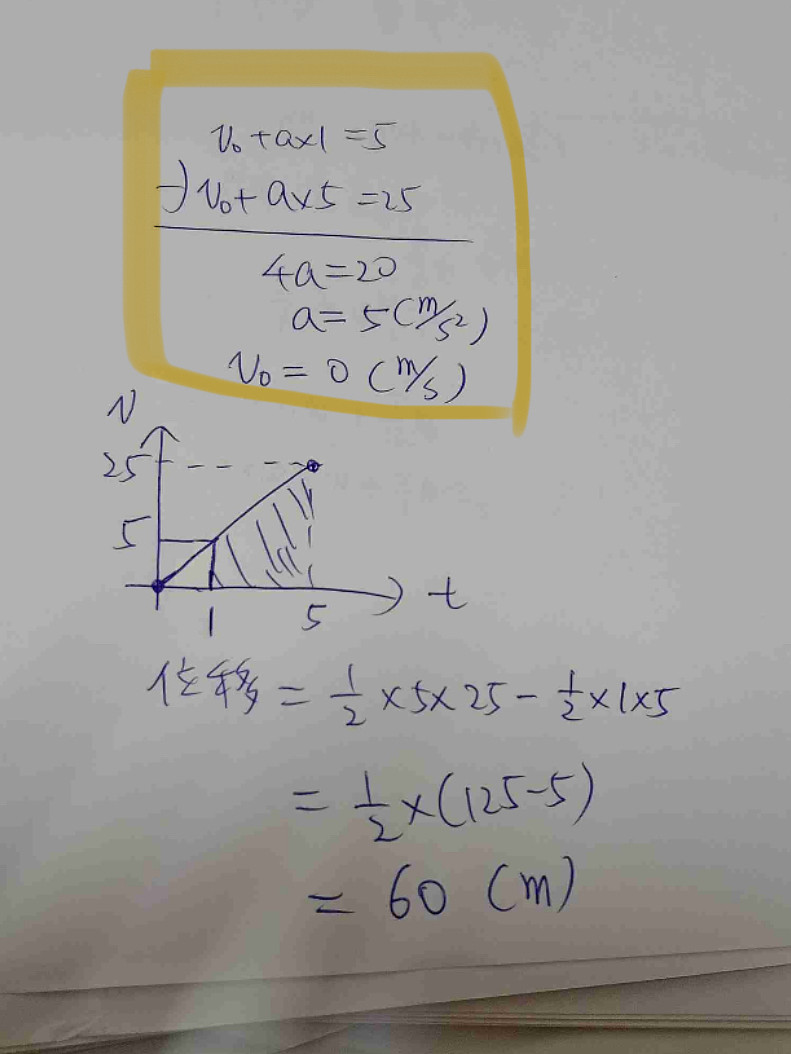 v₀+a×1=5
-) v₀+a×5=25
4a=20
a=5(m/s²)
v₀=0(m/s)
v
25
5
1
5
t
位移=1/2×5×25-1/2×1×5
=1/2×(125-5)
=60(m)